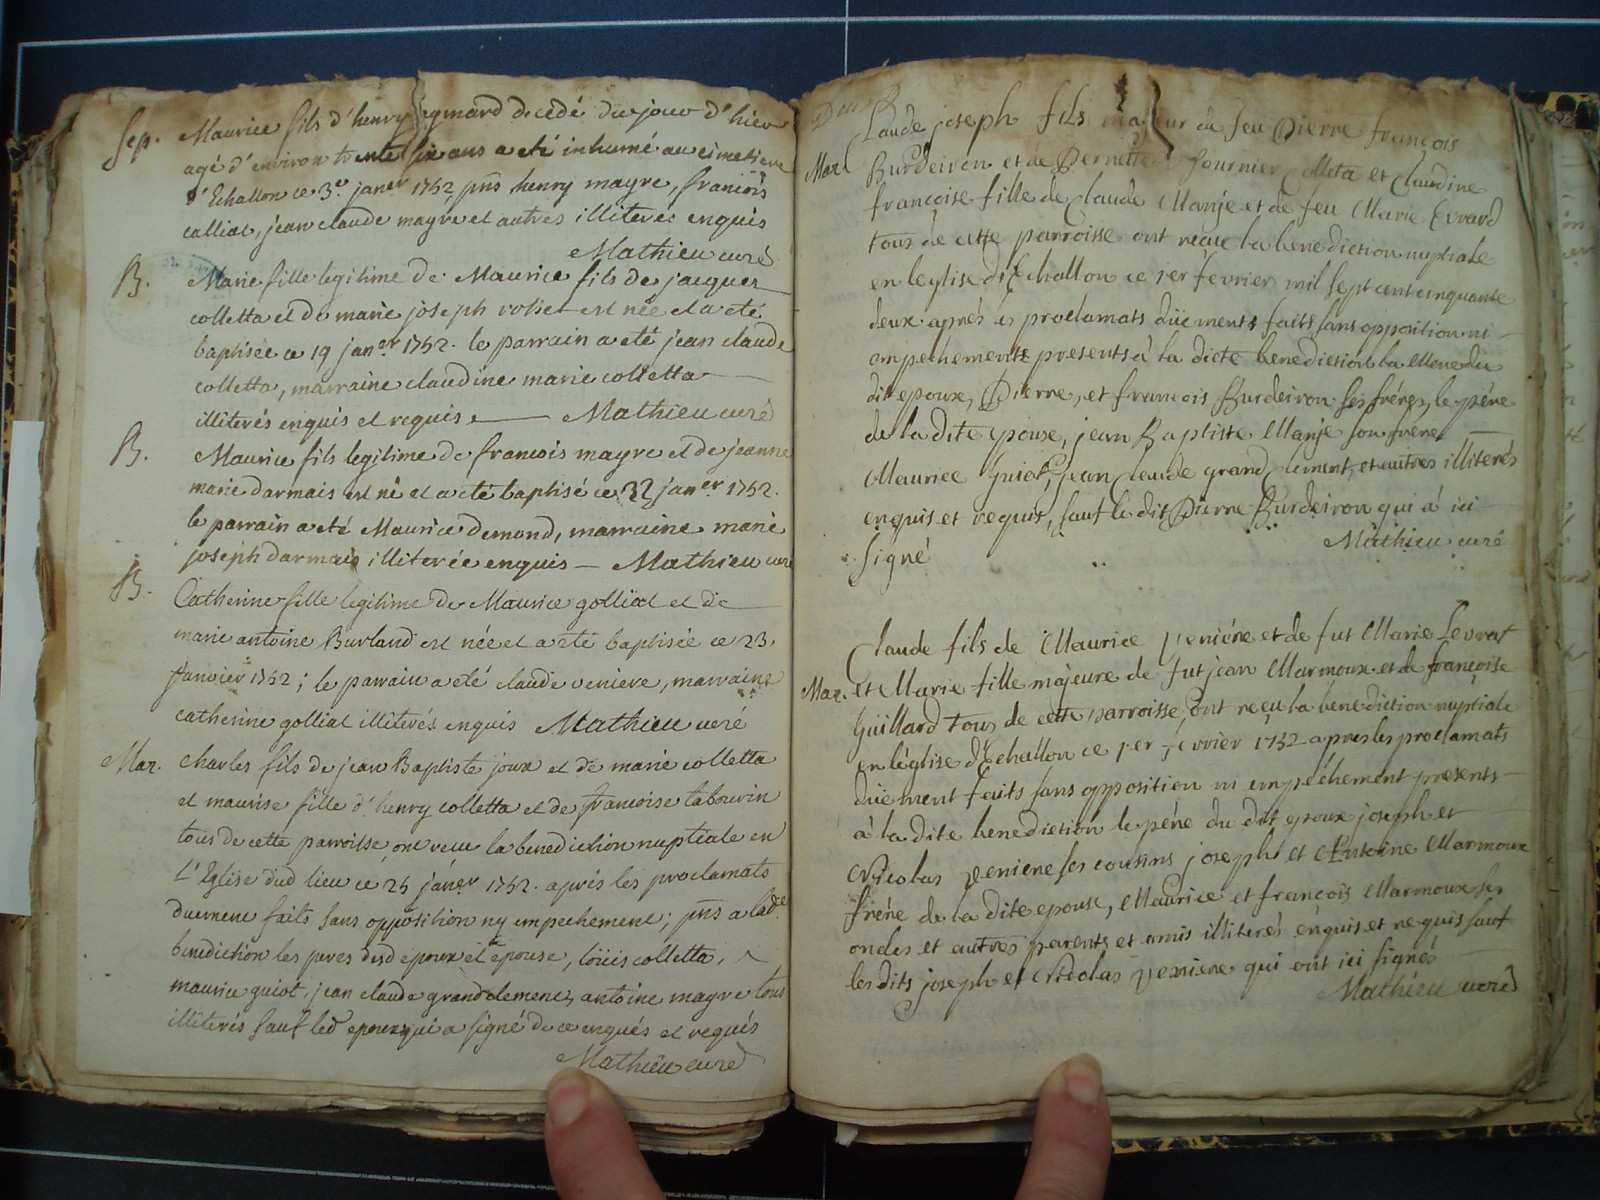 Sep. Maurice fils d'henry eymard decedé du jour d'hier
agé d'environ trente six ans a eté inhumé au cimetiere
d'Echallon ce 3e janer 1752, pnts henry mayre, francois
calliat, jean claude mayre et autres illiteres enquis
Mathieu curé
B. Marie fille legitime de Maurice fils de jacques
colletta et de marie joseph est née et a eté
baptisée ce 19 janer 1752. le parrain a eté jean claude
colletta, marraine claudine marie colletta
illiterés enquis et requis Mathieu curé
B. Maurice fils legitime de francois mayre et de jeanne
marie darmais est né et a eté baptisé ce 22 janer 1752.
le parrain a eté Maurice demond, marraine marie
joseph darmais illiterée enquis — Mathieu curé
B. Catherine fille legitime de Maurice golliat et de
marie antoine Burland est née et a eté baptisée ce 23.
janvier 1752; le parrain a eté claude veniere, marraine
catherine golliat illiterés enquis Mathieu curé
Mar. charles fils de jean Baptiste joux et de marie colletta
et maurise fille d'henry colletta et de francoise tabourin
tous de cette parroisse ont receu la benediction nuptiale en
L'Eglise dud lieu ce 25 janer 1752. aprés les proclamats
duement faits sans opposition ny empechement; pnts a lad.e
benediction les peres desd epoux et epouse, loüis colletta,
maurice guiot, jean claude grandclement, antoine mayre tous
illiterés sauf led epoux qui a signé de ce enqués et requés
Mathieu curé
Claude joseph fils majeur du feu Pierre françois
Mar. Burdeiron et de Pernette fournier Colleta et Claudine
françoise fille de Claude Manje et de feu Marie Evrard
tous de cette parroisse ont reçue la benediction nuptiale
en leglise d'Echallon ce 1er fevrier mil sept cent cinquante
deux aprés les proclamats düements faits sans opposition ni
empechements presents à la dicte benediction la Mere du
dit epoux, Pierre, et francois Burdeiron ses fréres, le pére
de la dite epouse, jean Baptiste Manje son frere
Maurice guiot, jean Claude grand Clement, et autres illiterés
enquis et requis, sauf le dit Pierre Burdeiron qui à ici
signé
Mathieu curé
Claude fils de Maurice veniére et de fut Marie Levrat
Mar. et Marie fille majeure de fut jean Marmoux et de françoise
guillard tous de cette parroisse, ont reçu la benediction nuptiale
en l'église d'Echallon ce 1er fevrier 1752 apres les proclamats
düement faits sans opposition ni empéchement presents
à la dite benediction le pére du dit epoux joseph et
Nicolas veniere ses cousins joseph et Antoine Marmoux
frére de la dite epouse, Maurice et françois Marmoux ses
oncles et autres parents et amis illiterés enquis et requis sauf
les dits joseph et Nicolas veniere qui ont ici signés
Mathieu curé